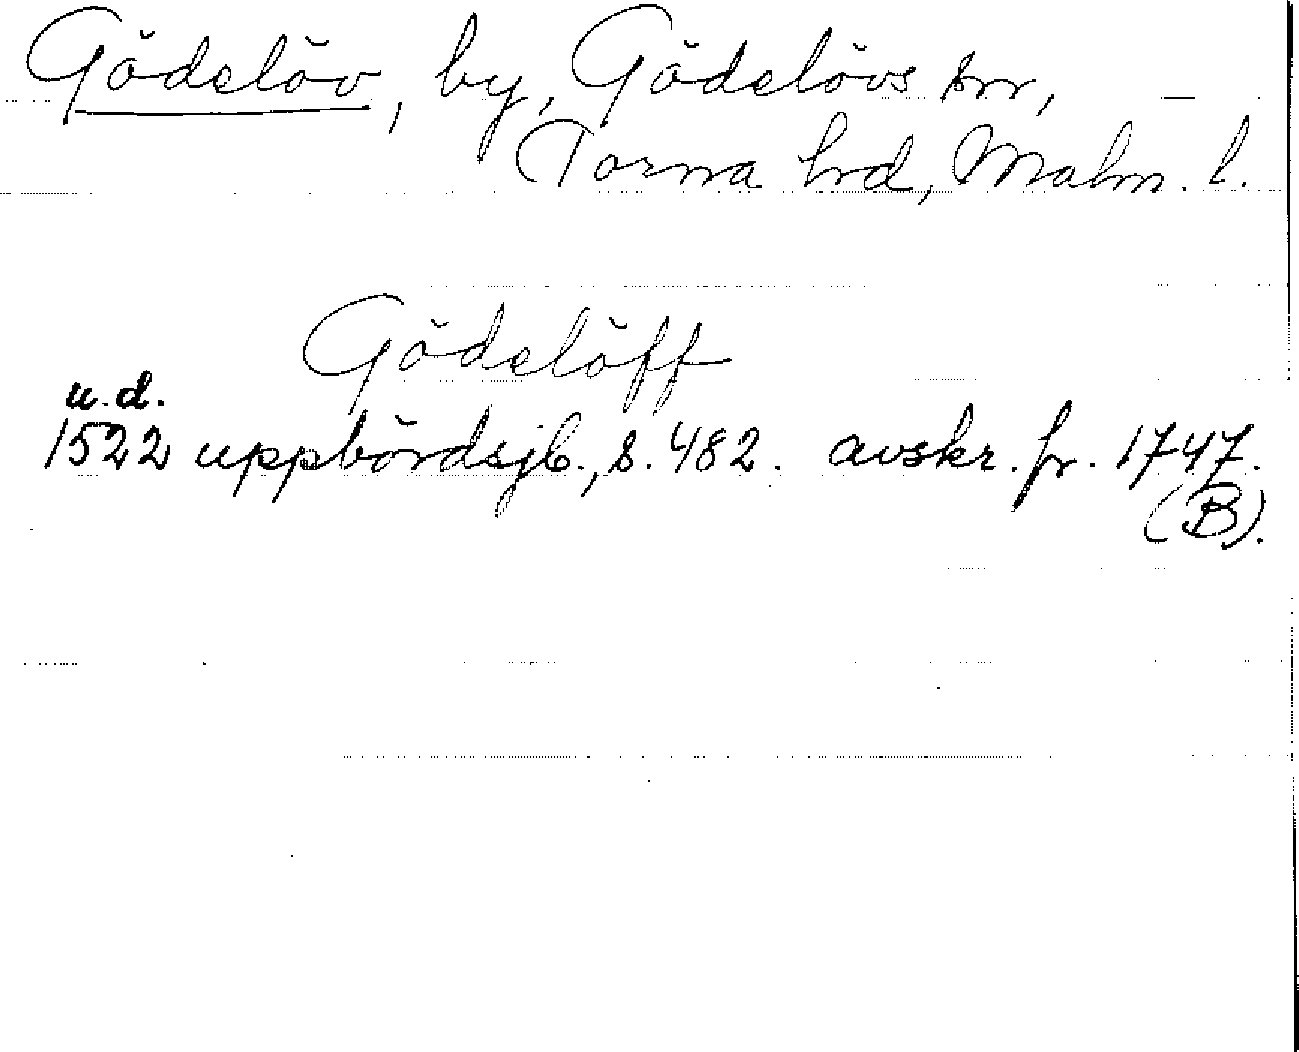 Gödelöv, by, Gödelövs snr,
Torna hrd, Malm. l.
Gödelöff
u.d.
1522 uppbördsjb., s. 482. avskr. fr. 1747.
(B).